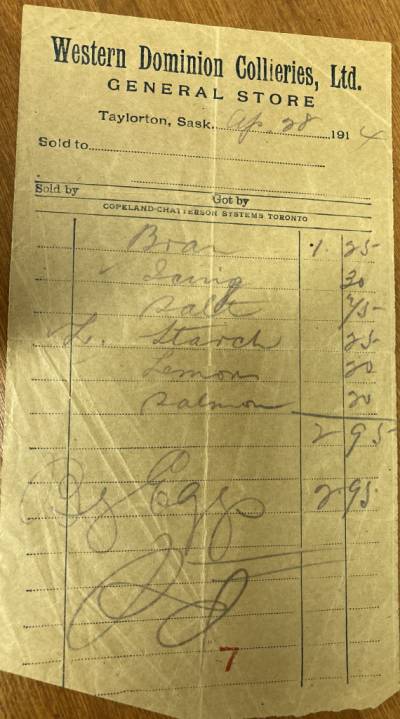 Western Dominion Collieries, Ltd.
GENERAL STORE
Taylorton, Sask. Ap. 28 1914
Sold to
Sold by Got by
COPELAND-CHATTERSON SYSTEMS TORONTO
Bran 1.25
Icing 30
Salt 75
L. Starch 25
Lemon 20
Salmon 20
2 95
By Eggs 2 95
7